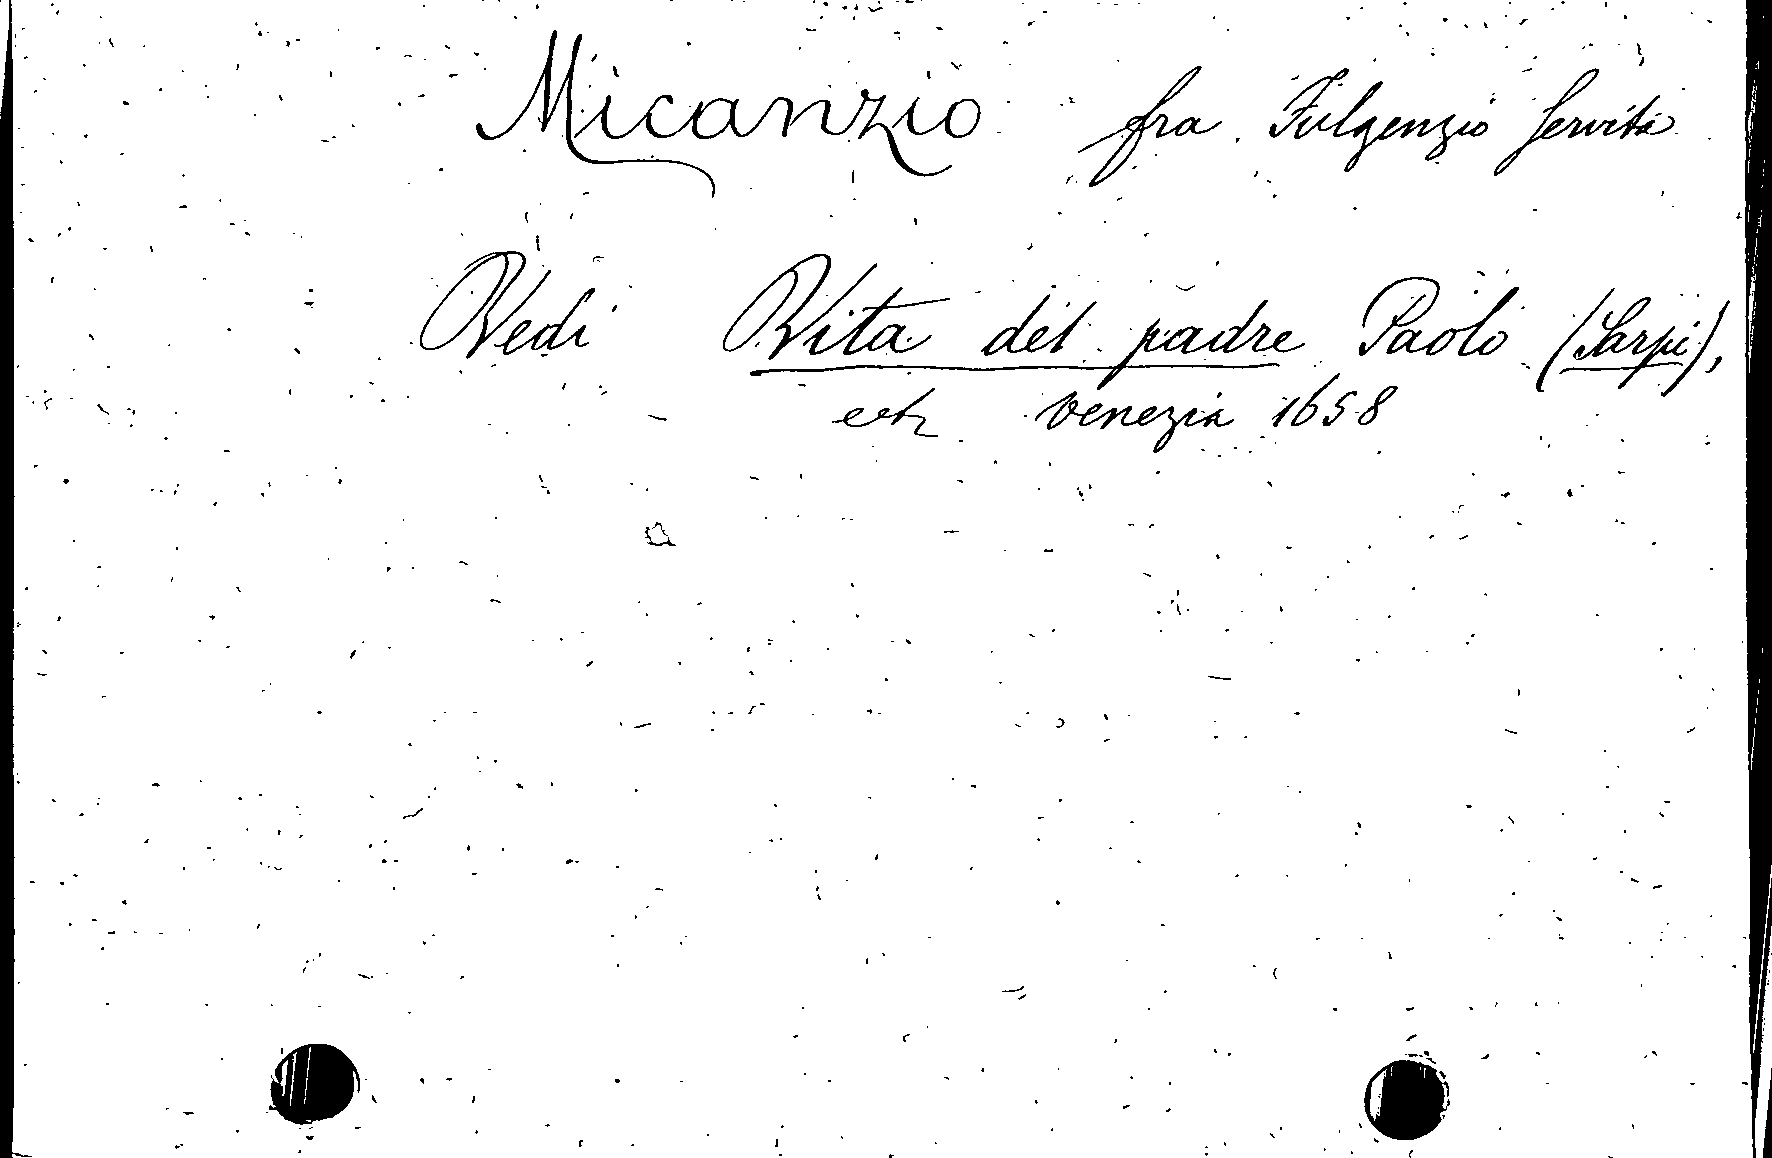 Micanzio fra Fulgenzio Servita
Vedi Vita del padre Paolo (Sarpi),
Venezia 1658